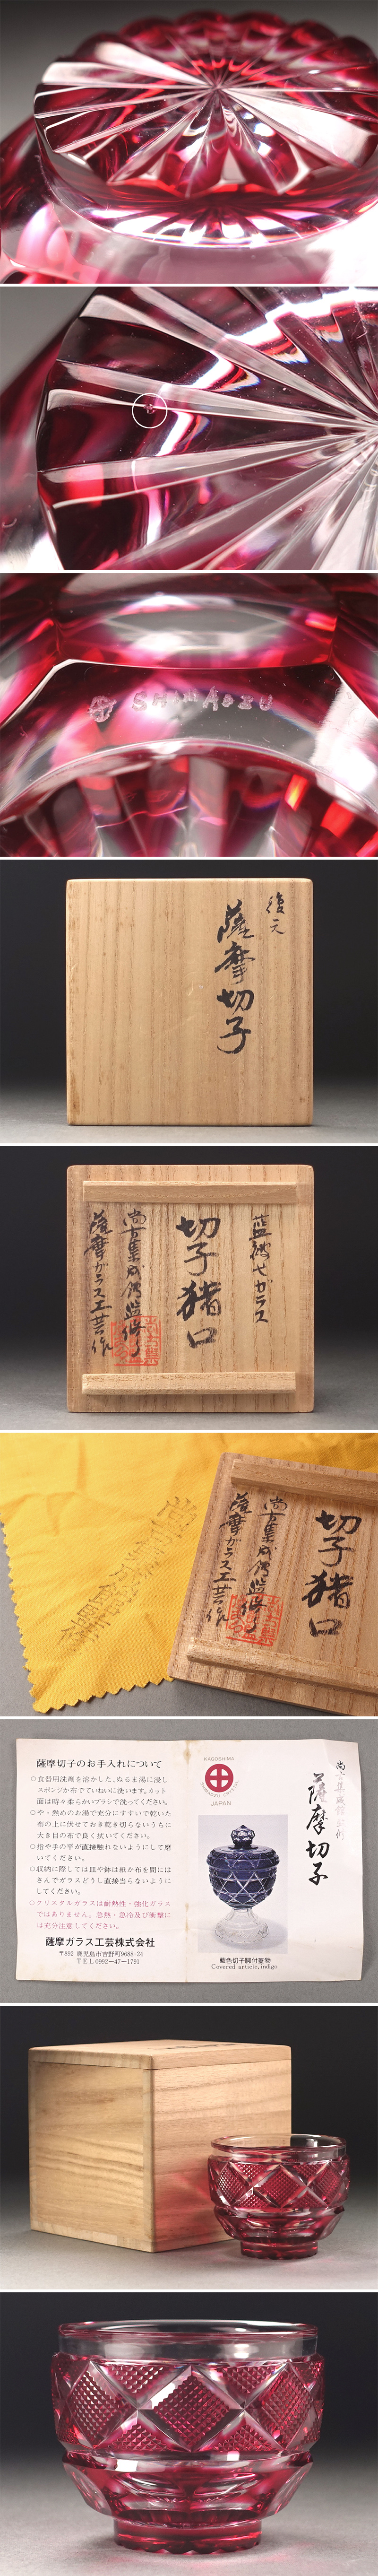 SHIMADZU
復元
薩摩切子
藍被せガラス
切子猪口
尚古集成館監修
薩摩ガラス工芸作
切子猪口
尚古集成館監修
薩摩ガラス工芸作
薩摩切子のお手入れについて
○食器用洗剤を溶かした、ぬるま湯に浸し
スポンジか布でていねいに洗います。カット
面は時々柔らかいブラシで洗ってください。
○や、熱めのお湯で充分にすすいで乾いた
布の上に伏せておき乾き切らないうちに
大き目の布で良く拭いてください。
○指や手の平が直接触れないようにして磨
いてください。
○収納に際しては皿や鉢は紙か布を間には
さんでガラスどうし直接当らないように
してください。
○クリスタルガラスは耐熱性・強化ガラス
ではありません。急熱・急冷及び衝撃に
は充分注意してください。
薩摩ガラス工芸株式会社
〒892 鹿児島市吉野町9688-24
TEL 0992-47-1791
KAGOSHIMA
JAPAN
藍色切子脚付蓋物
Covered article, indigo
薩摩切子